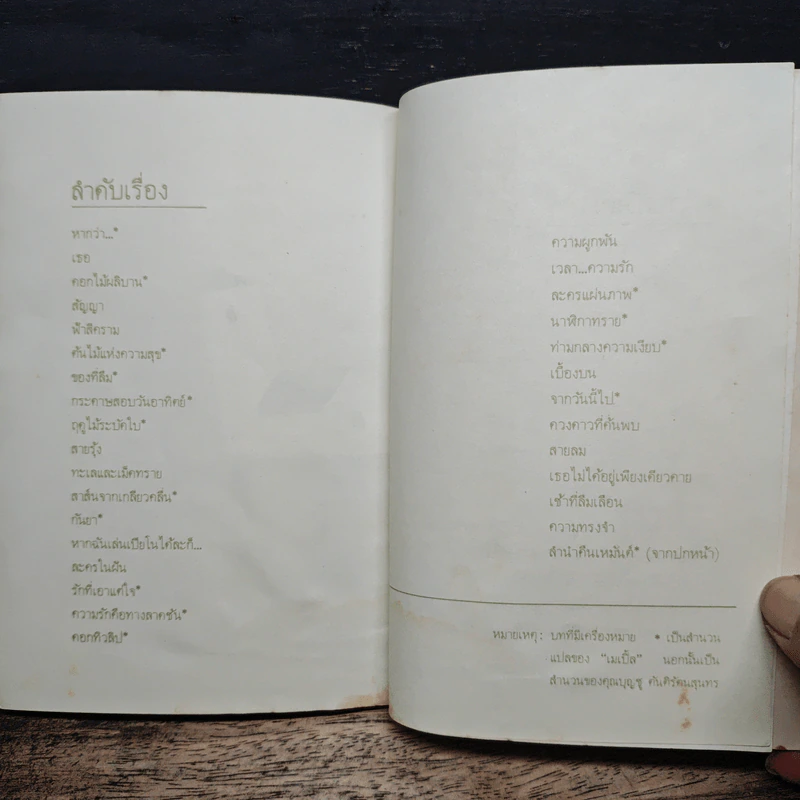 ลำดับเรื่อง
หากว่า...*
เธอ
ดอกไม้ผลิบาน*
สัญญา
ฟ้าสีคราม
ต้นไม้แห่งความสุข*
ของที่ลืม*
กระดาษสอบวันอาทิตย์*
ฤดูไม้ระบัดใบ*
สายรุ้ง
ทะเลและเม็ดทราย
สาส์นจากเกลียวคลื่น*
กันยา*
หากฉันเล่นเปียโนได้ละก็...
ละครในฝัน
รักที่เอาแต่ใจ*
ความรักคือทางลาดชัน*
ดอกทิวลิป*
ความผูกพัน
เวลา...ความรัก
ละครแผ่นภาพ*
นาฬิกาทราย*
ท่ามกลางความเงียบ*
เบื้องบน
จากวันนี้ไป*
ดวงดาวที่ค้นพบ
สายลม
เธอไม่ได้อยู่เพียงเดียวดาย
เช้าที่ลืมเลือน
ความทรงจำ
ลำนำคืนเหมันต์* (จากปกหน้า)
หมายเหตุ: บทที่มีเครื่องหมาย * เป็นสำนวน
แปลของ "เมเปิ้ล" นอกนั้นเป็น
สำนวนของคุณบุญชู ตันติรัตนสุนทร